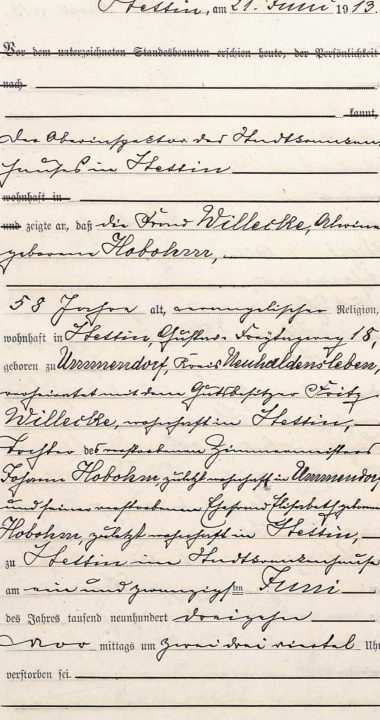 Stettin, am 21. Juni 1913.
Vor dem unterzeichneten Standesbeamten erschien heute, der Persönlichkeit
nach
kannt,
der Oberinspektor des Stadtkranken
hauses in Stettin
wohnhaft in
und zeigte an, daß die Frau Willecke, Alwine
geborene Hobohm,
58 Jahre alt, evangelischer Religion,
wohnhaft in Stettin, Gustav-Freytagweg 18,
geboren zu Ummendorf, Kreis Neuhaldensleben,
verheiratet mit dem Gutsbesitzer Fritz
Willecke, wohnhaft in Stettin,
Tochter des verstorbenen Zimmermeisters
Hobohm, zuletzt wohnhaft in Ummendorf
und seiner verstorbenen Ehefrau Elisabeth geborene
Hobohm, zuletzt wohnhaft in Stettin,
zu Stettin im Stadtkrankenhause
am ein und zwanzigsten Juni
des Jahres tausend neunhundert dreizehn
vor mittags um zwei drei viertel Uhr
verstorben sei.